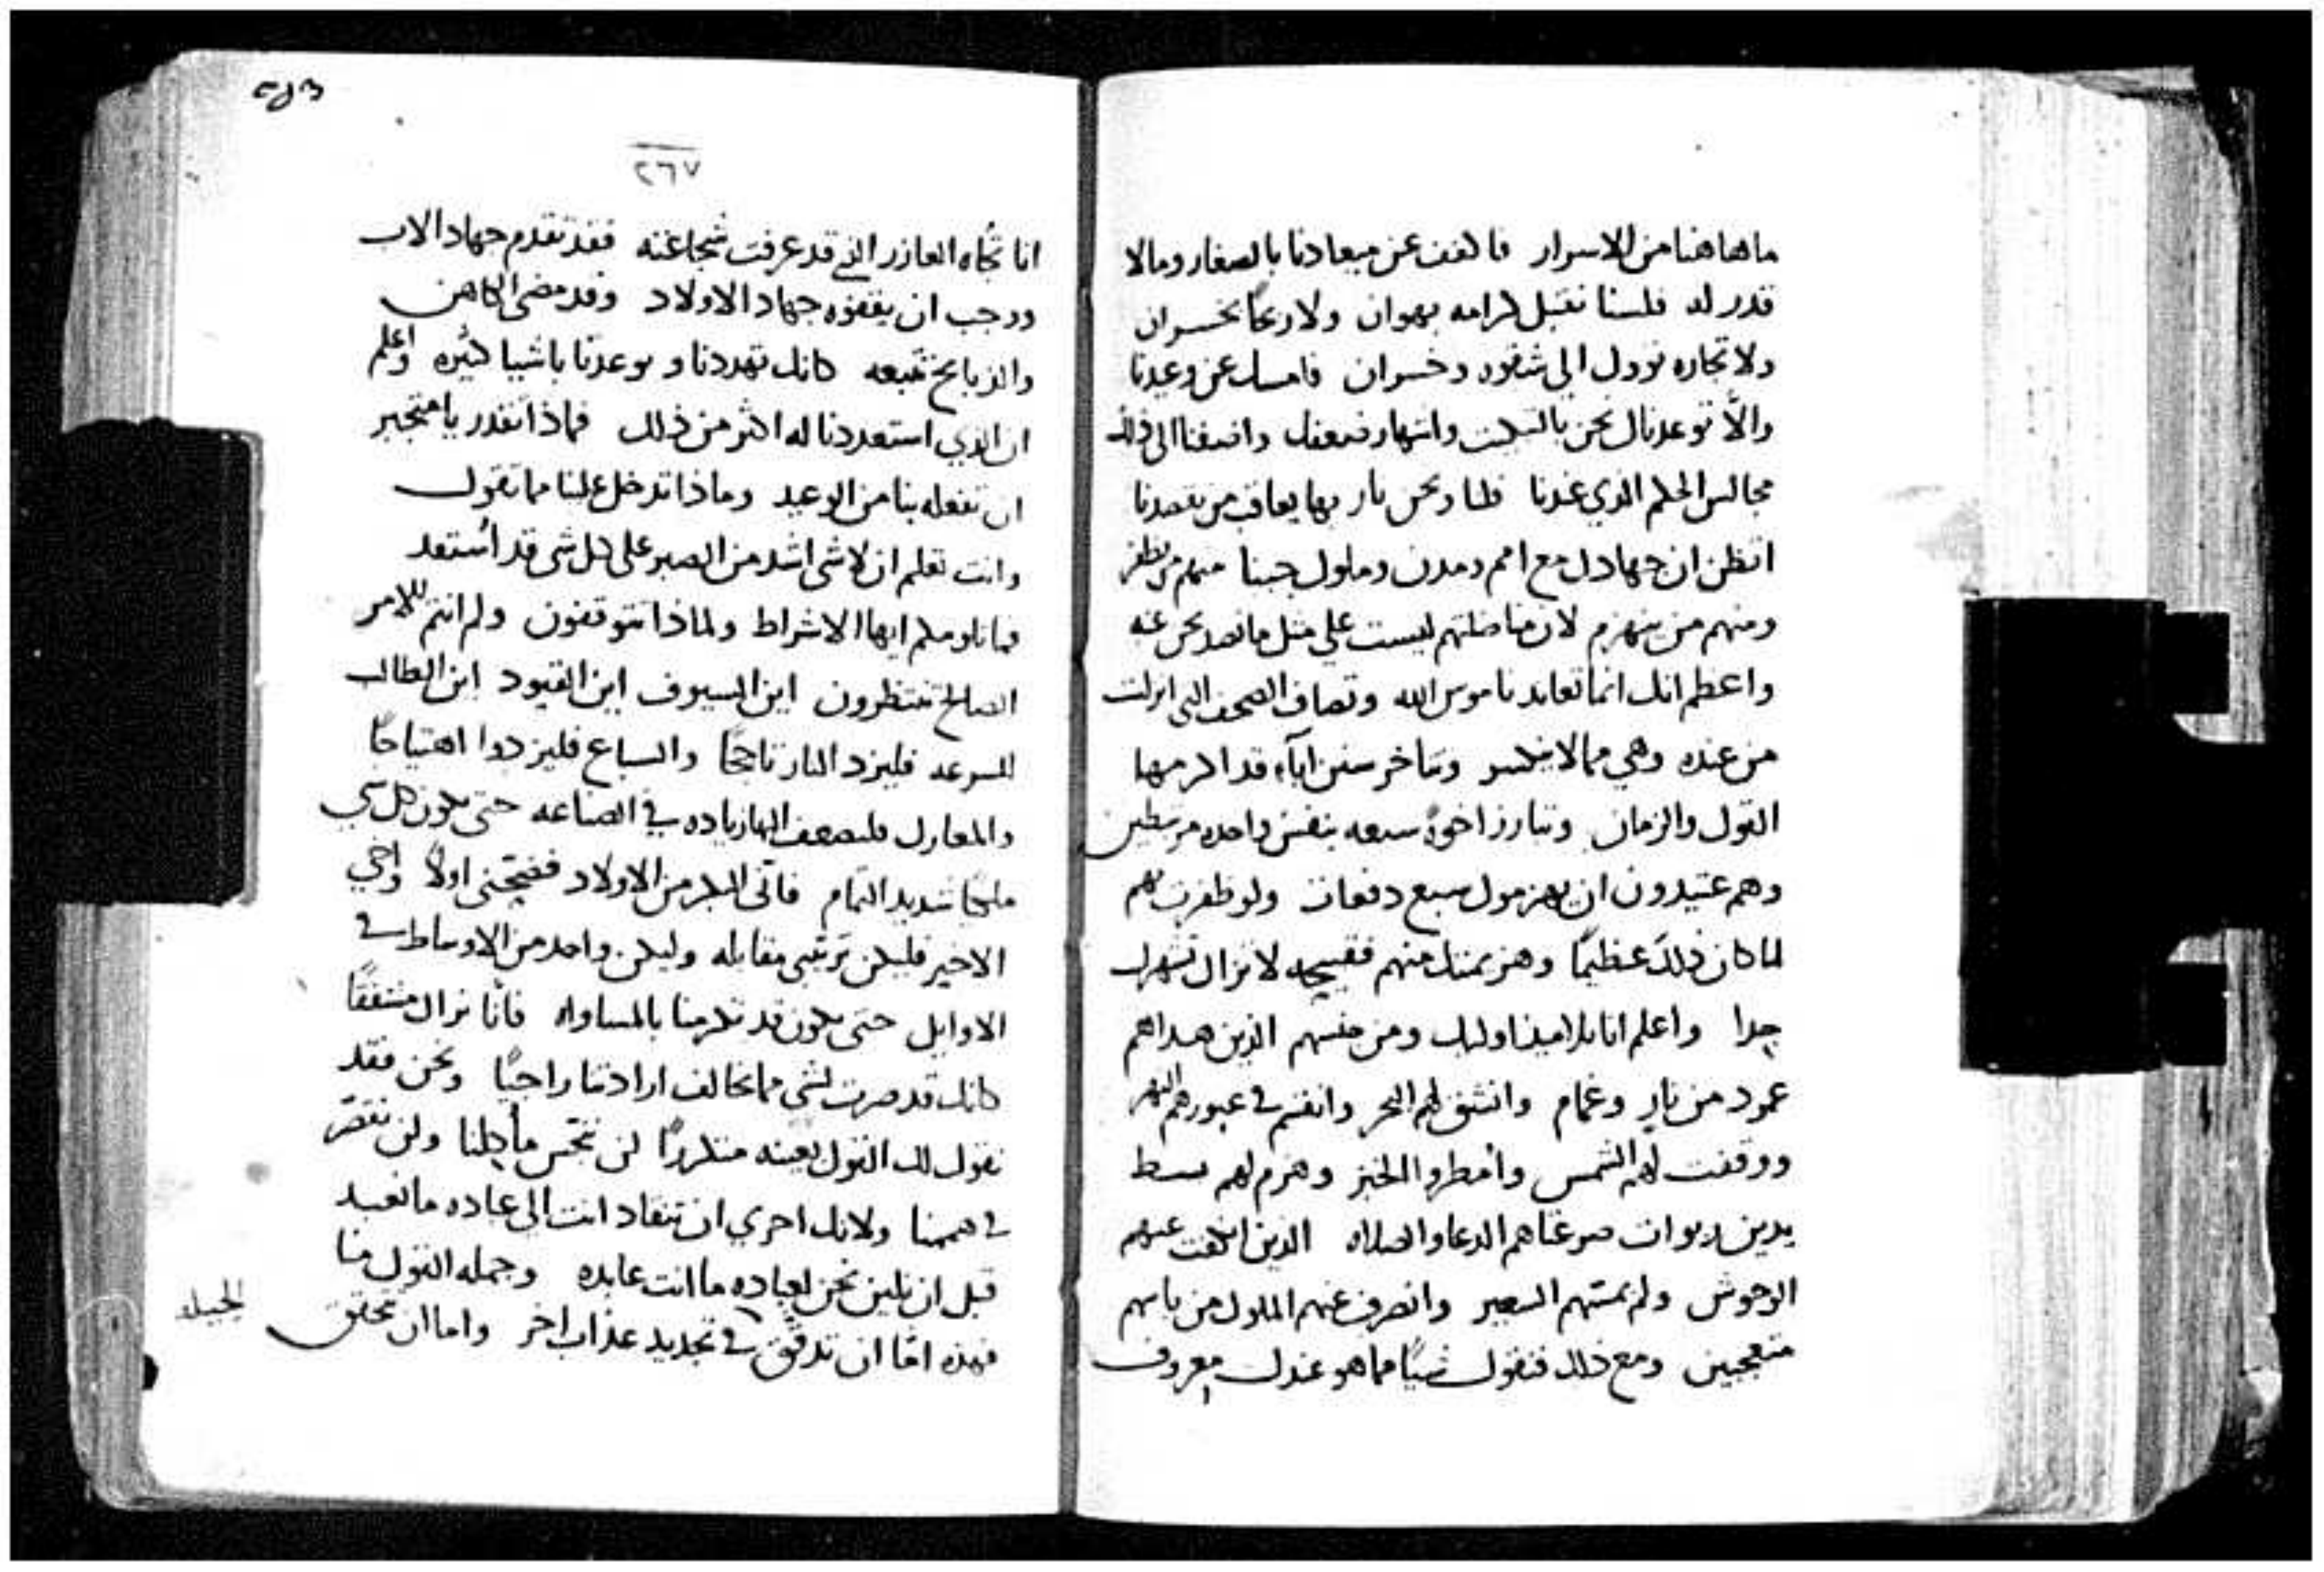 ما هاهنا من الاسرار فاكفف عن ميعادنا بالصغار وما لا
قدر له فلسنا نقبل كرامه بهوان ولا ربحًا بخسران
ولا تجاره توول الى شقوه وخسران فامسك عن وعيدنا
والّا توعدناك نحن بالتبكيت وانتهار ضعفك واضفنا الى ذلك
مجالس الحكم الذي عندنا فلنا ونحن نار بها يعاقب من يقصدنا
اتظن ان جهادك مع امم ومدن وملوك جبنا منهم من يظفر
ومنهم من ينهزم لان مناضلتهم ليست على مثل ما نصد نحن عنه
واعظم انك انما تعاند ناموس الله وتصاف الصحف التي انزلت
من عنده وهي مما لا ينكسر وتناخر سنن اباء قد اكرمها
القول والزمان وتبارز اخوةً سبعه بنفس واحده مرتبطين
وهم عتيدون ان يهزموك سبع دفعات ولو ظفرت بهم
لما كان ذلك عظيمًا وهزيمتك منهم فقبيحه لا تزال تشهرك
جدا واعلم انا تلاميذ اوليك ومن جنسهم الذين هداهم
عمود من نار وغمام وانشق لهم البحر وانقسم في عبورهم النهر
ووقفت لهم الشمس وامطروا الخبز وهزم لهم بسط
يدين ربوات صرعاهم الدعا والصلاه الذين انكفت عنهم
الوحوش ولم يمسهم السعير وانصرف عنهم الملوك من باسهم
متعجبين ومع ذلك فنقول شيًا مما هو عندك معروف
٢٦٧
انا تجاه العازر الذي قد عرفت شجاعته فقد تقدم جهاد الاب
ووجب ان يقفوه جهاد الاولاد وقد مضى الكاهن
والذبايح تتبعه كانك تهددنا وتوعدنا باشيا كثيره واعلم
ان الذي استعددنا له اكثر من ذلك فماذا تقدر يا متجبر
ان تفعله بنا من الوعيد وماذا تدخل علينا مما تقول
وانت تعلم ان لا شي اشد من الصبر على كل شي قد استعد
فما تلومكم ايها الاشراط ولماذا تتوقفون ولم انتم للامر
الصالح تنتظرون اين السيوف اين القيود اين الطالب
للسرعه فليزد النار تاججًا والسباع فليزدوا اهتياجًا
والمعارك فليضعف اليها زياده في الصناعه حتى يكون كل شي
ملكيًا شديد التمام فاتي البكر من الاولاد ففتحني اولًا واخي
الاخير فليكن ترتيبي مقابله وليكن واحد من الاوساط في
الاوايل حتى يكون قد تكرمنا بالمساواه فانّا نراك مشفقًا
كانك قد صرت لشي مما يخالف ارادتنا راجيًا ونحن فقد
نقول لك القول بعينه متكررًا لن ننجس مأكلنا ولن نقصّر
في هممنا ولانك احري ان تنقاد انت الى عباده ما نعبد
قبل ان نلين نحن لعباده ما انت عابده وجمله القول منا
فهذه امّا ان تدقّق في تجديد عذاب اخر واما ان تحقق
الحيله